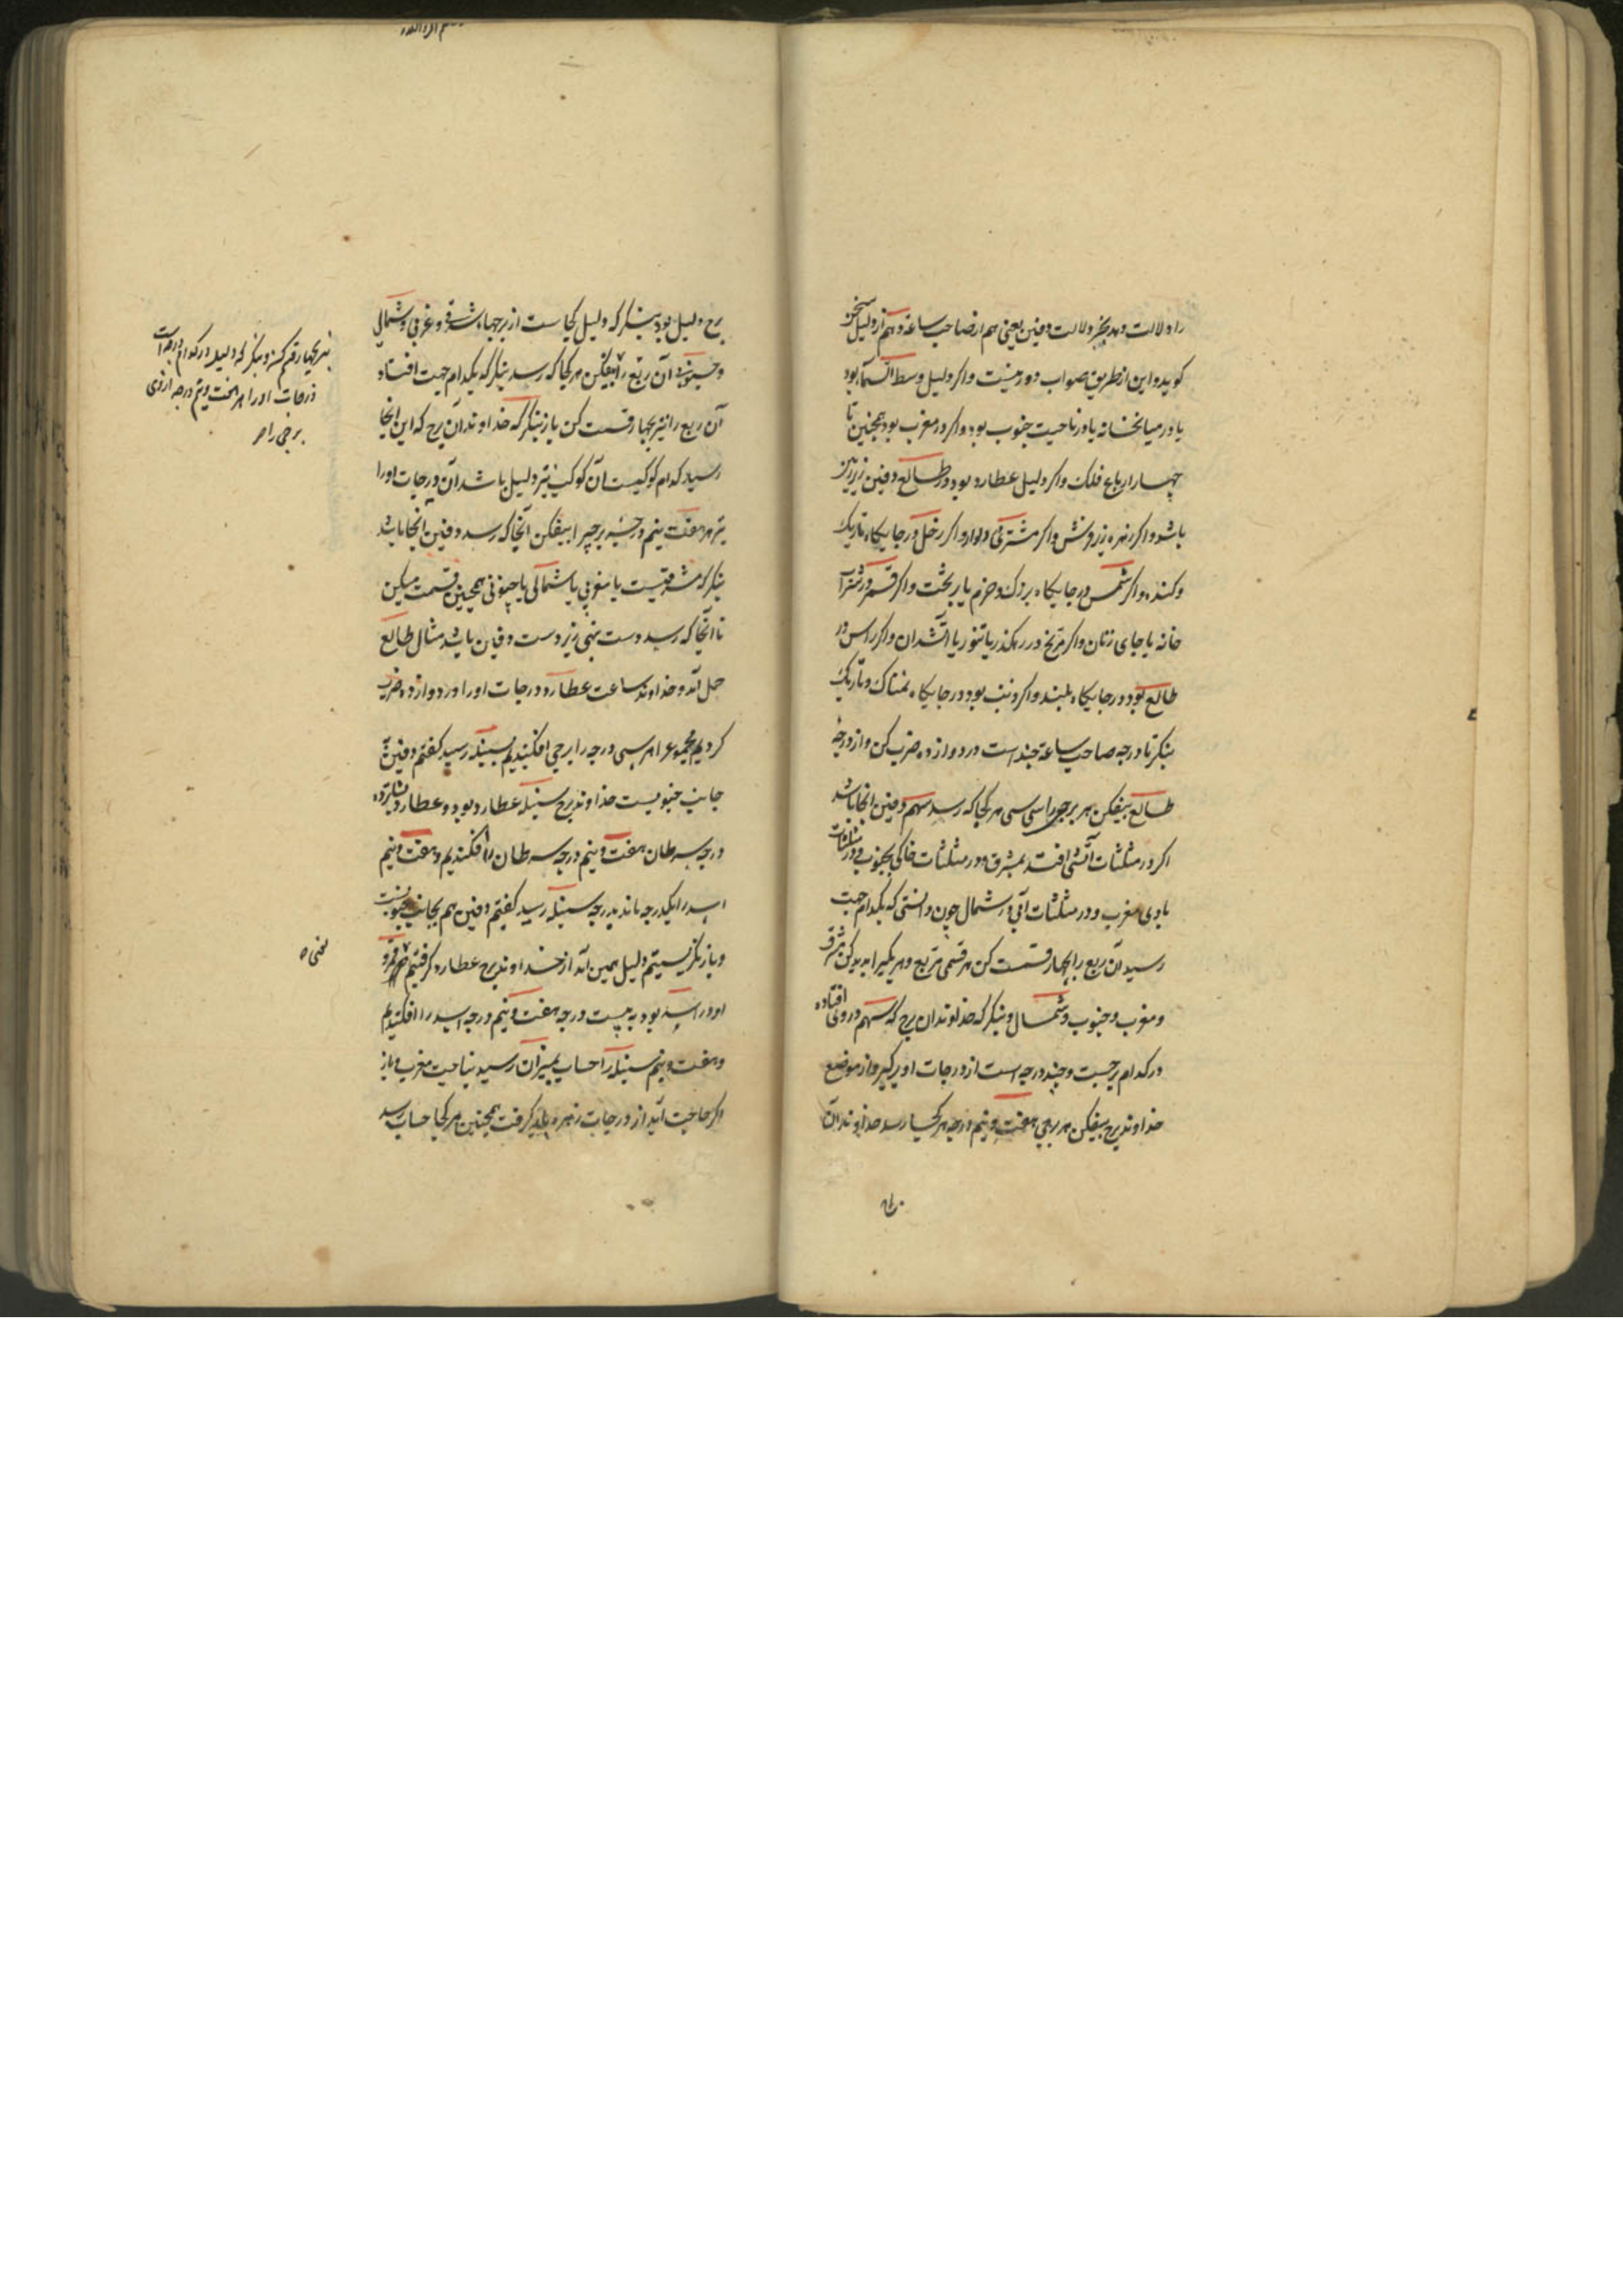 را دلالت دهد بجز دلالت دفین یعنی هم از صاحب ساعة و هم از دلیل سخن
کوید و این از طریق صواب دور نیست و اکر دلیل وسط السما بود
یا در میانخانه یا در ناحیت جنوب بود و اکر در مغرب بود همچنین تا
چهار ارباع فلک و اکر دلیل عطارد بود در طالع دفین زیر
باشد و اکر زهره زیر فرش و اکر مشتری دیوار و اکر زحل در جایکاه تاریک
و کنده و اکر شمس در جایکاه بزرک و خرم یا و اکر قمر در
خانه یا جای زنان و اکر مریخ در رهکذر یا تنور یا آتشدان و اکر راس در
طالع بود در جایکاه بلند و اکر ذنب بود در جایکاه نمناک و تاریک
بنکر تا درجه صاحب ساعة چند است در دوازده ضرب کن و از درجهٔ
طالع بیفکن هر برجی را سی سی هر کجا که رسد سهم دفین انجا باشد
اکر در مثلثات آتشی افتد بمشرق و در مثلثات خاکی بجنوب و در مثلثات
بادی مغرب و در مثلثات آبی در شمال چون دانستی که بکدام جهت
رسید آن ربع را بچهار قسمت کن هر قسمی مربع و پدید کن مشرق
و مغرب و جنوب و شمال و بنکر که خداوند ان برج که سهم در وی افتاده
در کدام برجست و چند درجه است از درجات او برکیر و از موضع
خداوند برج بیفکن هر برجی هفت و نیم درجه هر کجا رسد خداوند آن
برج دلیل بود بنکر که دلیل کجاست از برجهاء شرقی و غربی و شمالی
و جنوبی آن ربع را بیفکن هر کجا که رسد بنکر که بکدام جهت افتاد
آن ربع را نیز بچهار قسمت کن باز بنکر که خداوند آن برج که این انجا
رسید کدام کوکبست آن کوکب نیز دلیل باشد آن درجات او را
نیز هر هفت و نیم درجه برجیرا بیفکن آنجا که رسد دفین انجا باشد
بنکر که مشرقیست یا مغربی یا شمالی یا جنوبی همچنین قسمت میکن
تا آنجا که رسد دست بنهی زیر دست دفین باشد مثال طالع
حمل آمد و خداوند ساعت عطارد و درجات او را در دوازده ضرب
کردیم مجموع را هر سی درجه را برجی افکندیم بسنبله رسید کفتم دفین
جانب جنوبیست خداوند برج سنبله عطارد بود و عطارد
درجه سرطان هفت و نیم درجه سرطان را افکندیم و هفت و نیم
اسد را یکدرجه ماند بدرجه سنبله رسید کفتم دفین هم بجانب جنوبست
و باز نکریستیم دلیل همین آمد از خداوند برج عطارد کرفتیم
او در اسد بود به بیست درجه هفت و نیم درجه اسد را افکندیم
و هفت و نیم سنبله را حساب بمیزان رسید بناحیت مغرب و باز
اکر حاجت آید از درجات زهره باید کرفت همچنین هر کجا حساب رسد
نیز بچهار قسم کن و بنکر که دلیل در کدام درجه است
درجات او را هر هفت و نیم درجه از وی
برجی را